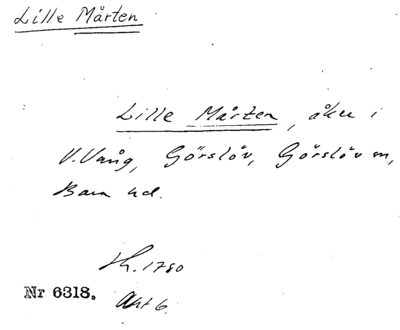 Lille Mårten
Lille Mårten, åker i
V. Vång, Görslöv, Görslöv sn,
Bara hd.
Sk. 1780
Nr 6318. Akt 6.